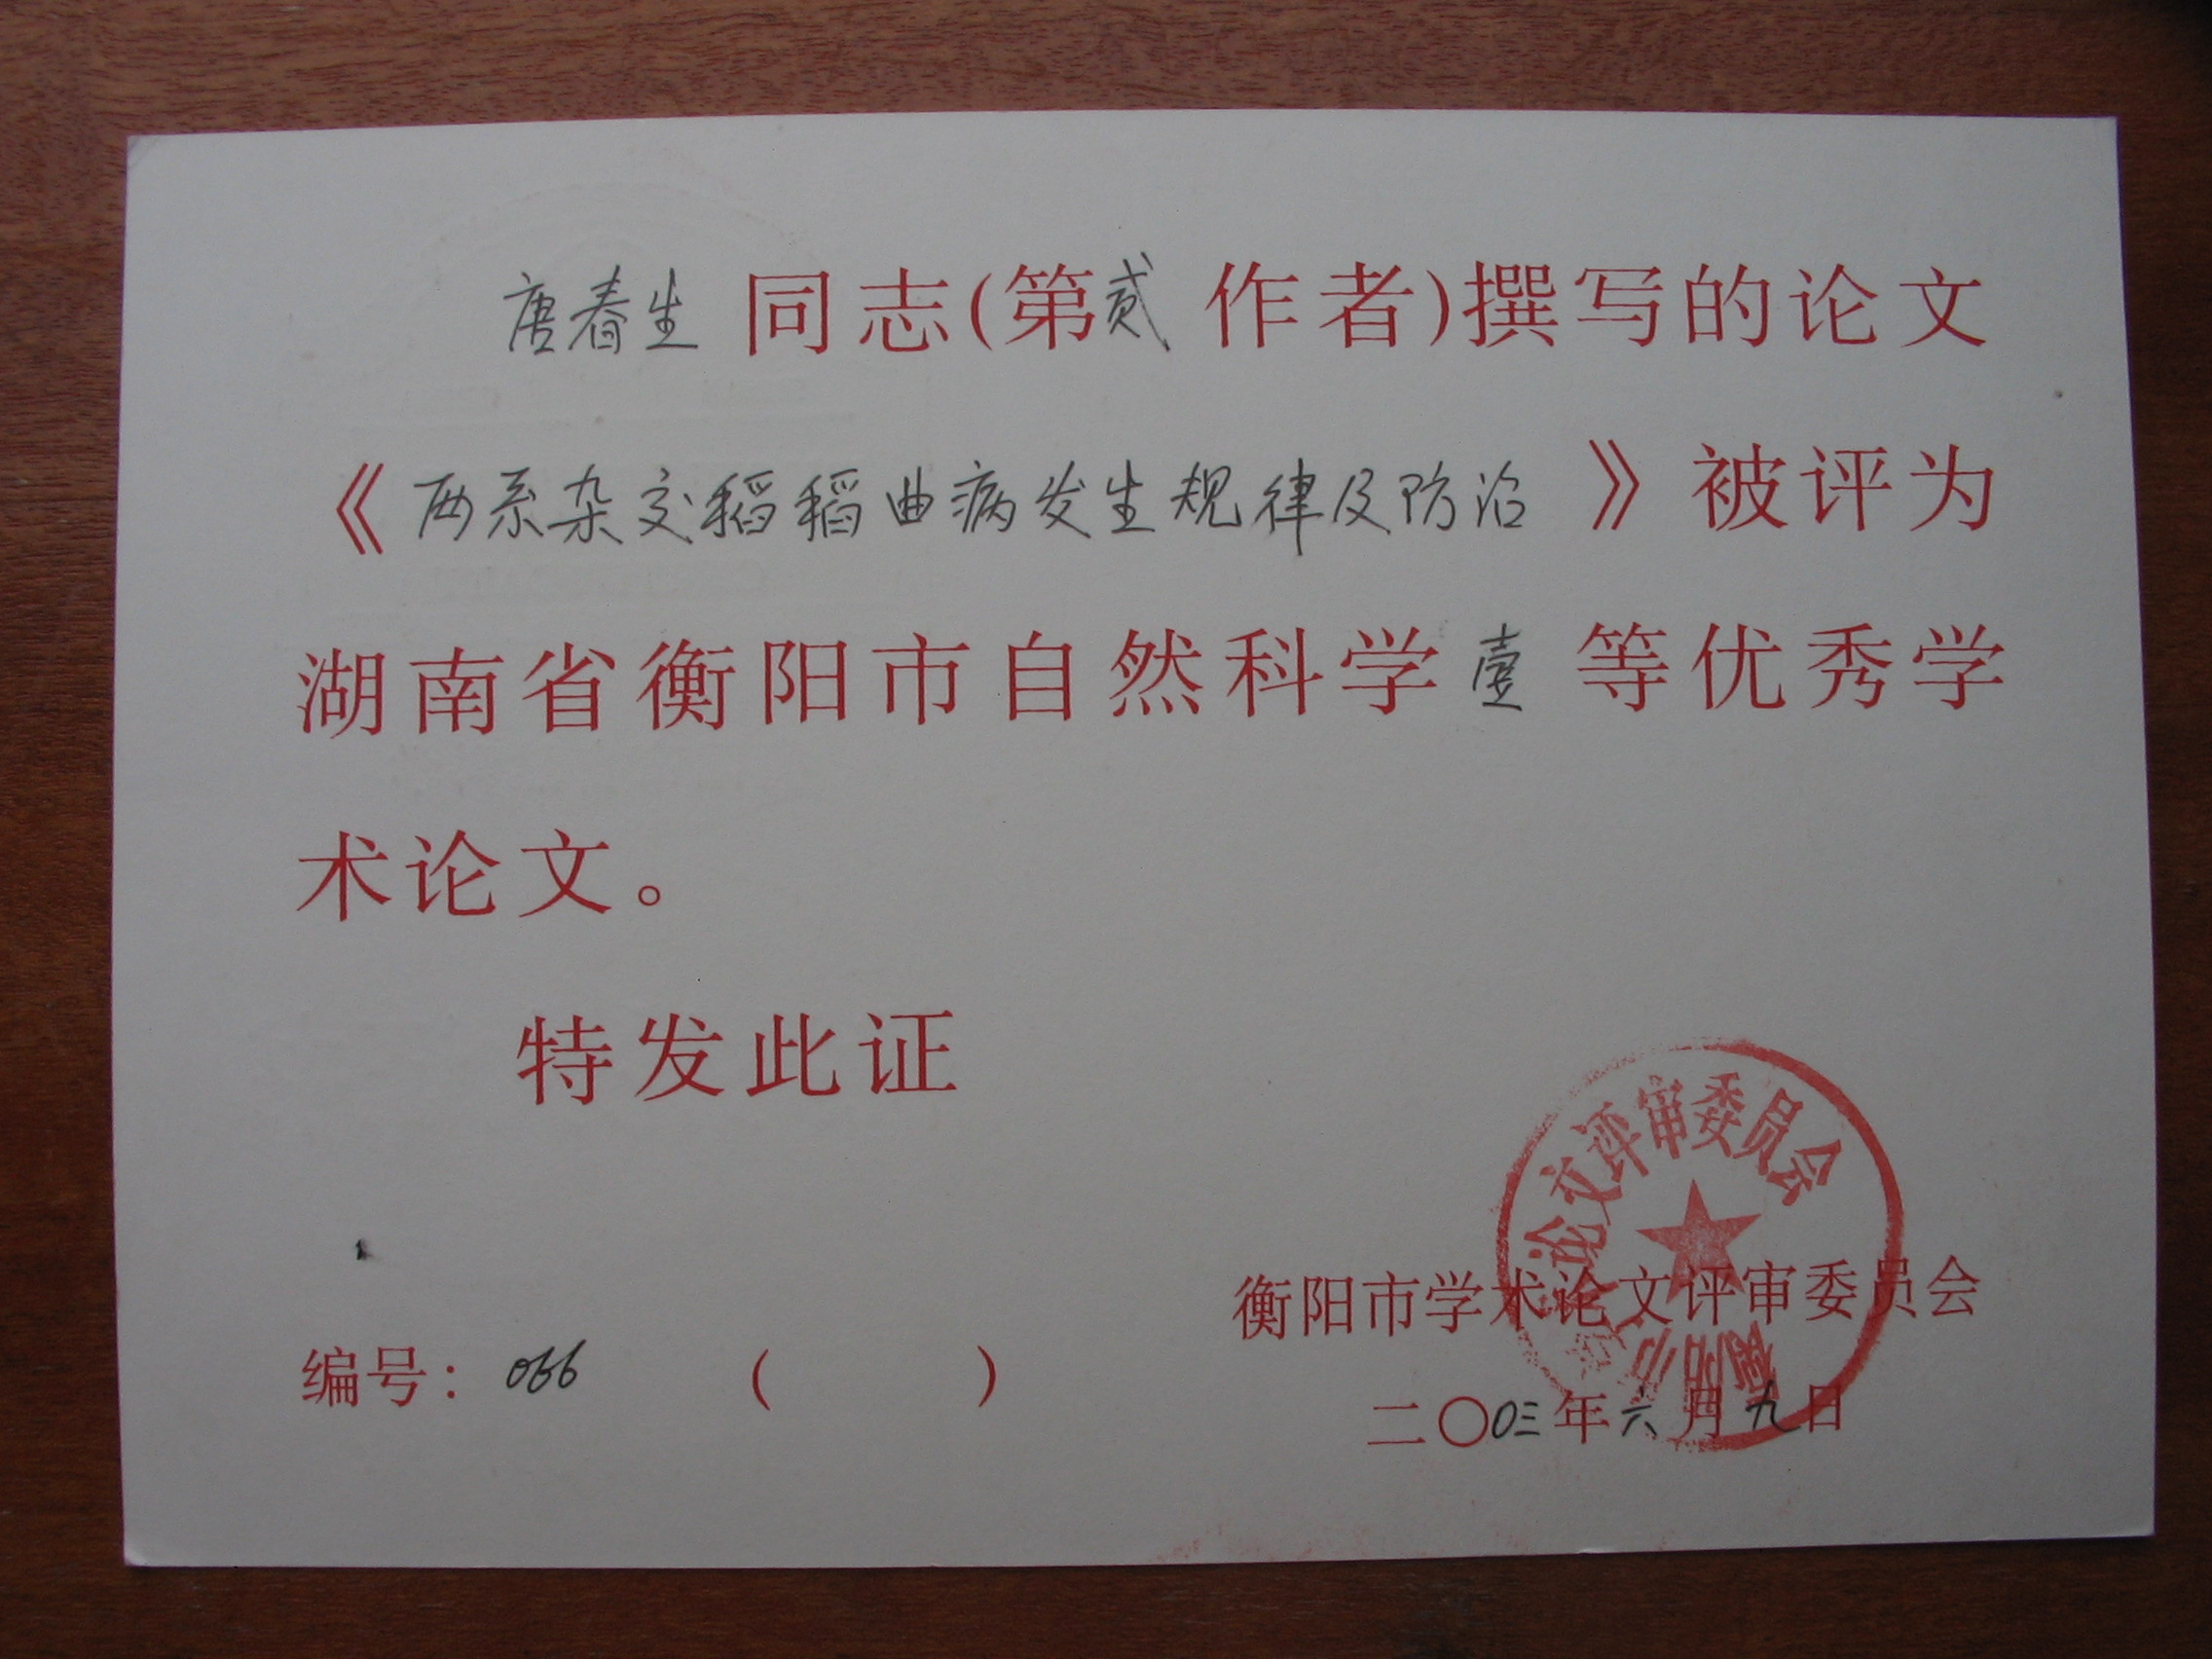 唐春生同志(第贰作者)撰写的论文
《两系杂交稻稻曲病发生规律及防治》被评为
湖南省衡阳市自然科学壹等优秀学
术论文。
特发此证
论文评审委员会
衡阳市学术论文评审委员会
编号：066 （ ）
二〇0三年六月九日